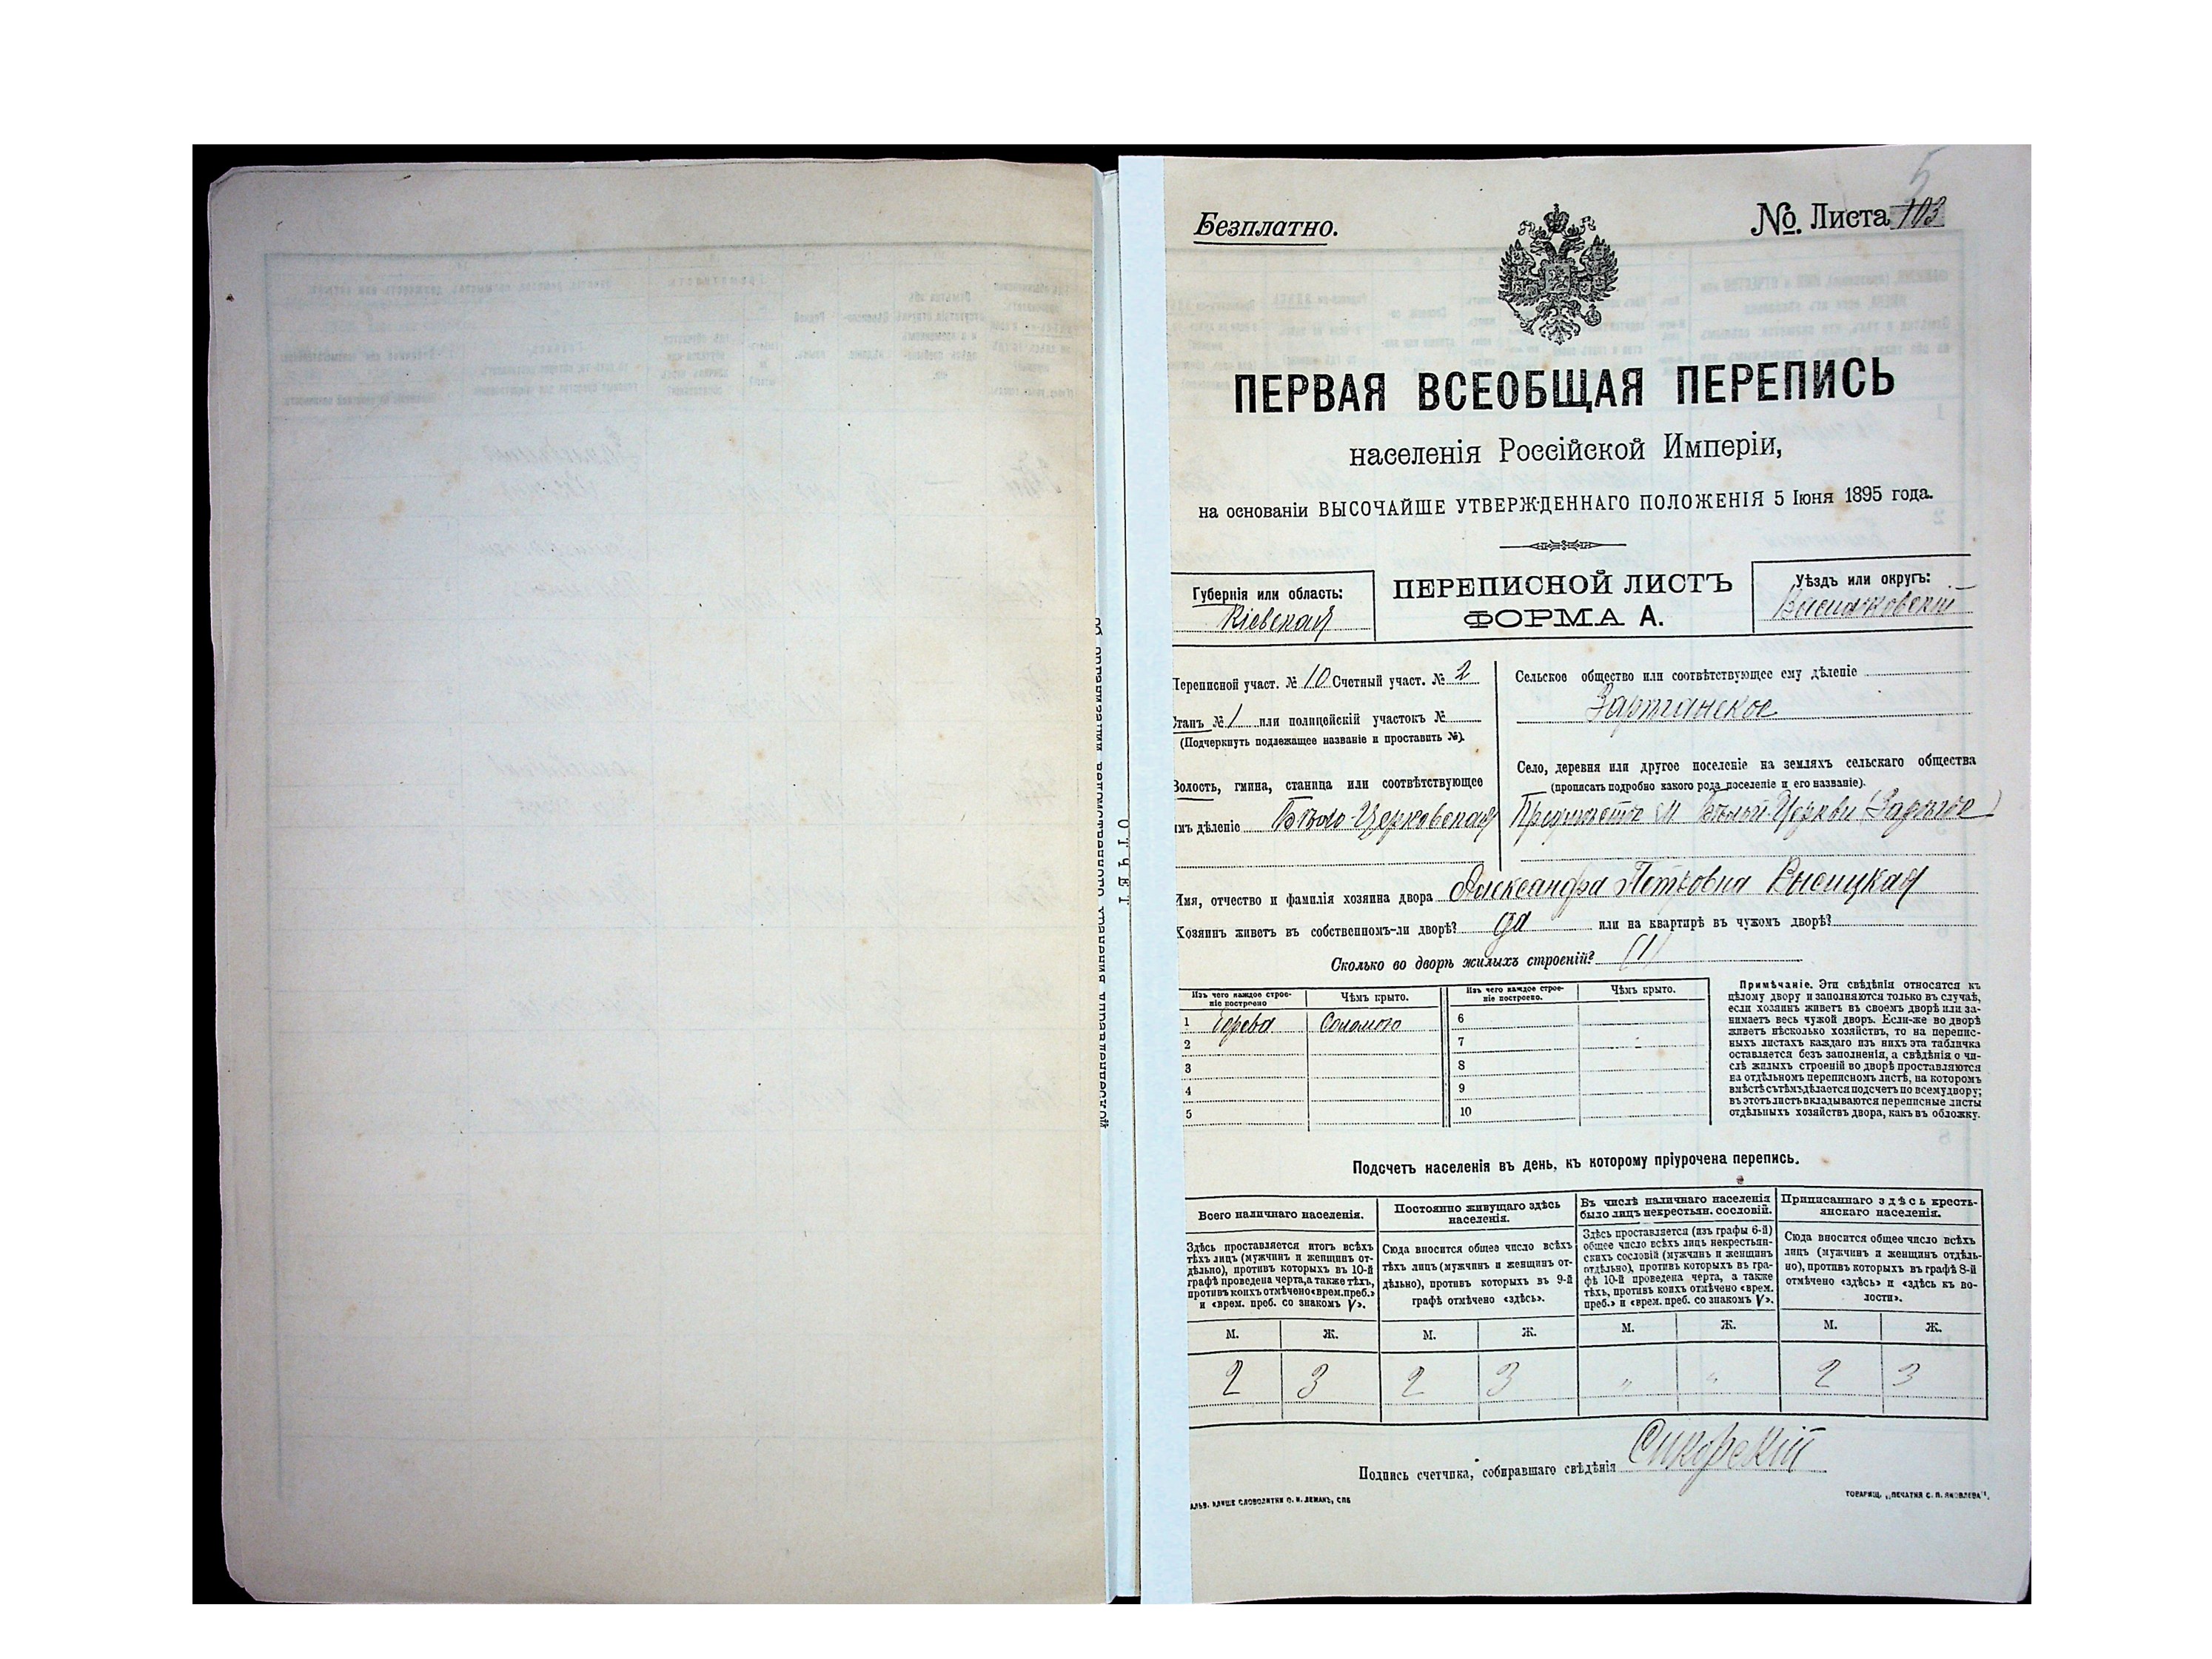 5
Безплатно.
№. Листа 103
ПЕРВАЯ ВСЕОБЩАЯ ПЕРЕПИСЬ
населенія Россійской Имперіи,
на основаніи ВЫСОЧАЙШЕ УТВЕРЖДЕННАГО ПОЛОЖЕНІЯ 5 Іюня 1895 года.
Губернія или область:
Кіевская
ПЕРЕПИСНОЙ ЛИСТЪ
ФОРМА А.
Уѣздъ или округъ:
Васильковскій
Переписной участ. № 10 Счетный участ. № 2
Станъ № 1 или полицейскій участокъ №
(Подчеркнуть подлежащее названіе и проставить №).
Волость, гмина, станица или соотвѣтствующее
имъ дѣленіе Бѣло-Церковская
Сельское общество или соотвѣтствующее ему дѣленіе
Заречанское
Село, деревня или другое поселеніе на земляхъ сельскаго общества
(прописать подробно какого рода поселеніе и его названіе).
Предмѣстье М Бѣлой-Церкви
Имя, отчество и фамилія хозяина двора Александра Петровна Высицкая
Хозяинъ живетъ въ собственномъ-ли дворѣ? да или на квартирѣ въ чужомъ дворѣ?
Сколько во дворѣ жилыхъ строеній? (1)
Изъ чего каждое строе-
ніе построено
Чѣмъ крыто.
Изъ чего каждое строе-
ніе построено.
Чѣмъ крыто.
1 Дерева Соломою 6
2 7
3 8
4 9
5 10
Примѣчаніе. Эти свѣдѣнія относятся къ
цѣлому двору и заполняются только въ случаѣ,
если хозяинъ живетъ въ своемъ дворѣ или за-
нимаетъ весь чужой дворъ. Если-же во дворѣ
живетъ нѣсколько хозяйствъ, то на перепис-
ныхъ листахъ каждаго изъ нихъ эта табличка
оставляется безъ заполненія, а свѣдѣнія о чи-
слѣ жилыхъ строеній во дворѣ проставляются
на отдѣльномъ переписномъ листѣ, на которомъ
вмѣстѣ съ тѣмъ дѣлается подсчетъ по всему двору;
въ этотъ листъ вкладываются переписные листы
отдѣльныхъ хозяйствъ двора, какъ въ обложку.
Подсчетъ населенія въ день, къ которому пріурочена перепись.
Всего наличнаго населенія.
Постоянно живущаго здѣсь
населенія.
Въ числѣ наличнаго населенія
было лицъ некрестьян. сословій.
Приписаннаго здѣсь кресть-
янскаго населенія.
Здѣсь проставляется итогъ всѣхъ
тѣхъ лицъ (мужчинъ и женщинъ от-
дѣльно), противъ которыхъ въ 10-й
графѣ проведена черта, а также тѣхъ,
противъ коихъ отмѣчено «врем. преб.»
и «врем. преб. со знакомъ V».
Сюда вносится общее число всѣхъ
тѣхъ лицъ (мужчинъ и женщинъ от-
дѣльно), противъ которыхъ въ 9-й
графѣ отмѣчено «здѣсь».
Здѣсь проставляется (изъ графы 6-й)
общее число всѣхъ лицъ некрестьян-
скихъ сословій (мужчинъ и женщинъ
отдѣльно), противъ которыхъ въ гра-
фѣ 10-й проведена черта, а также
тѣхъ, противъ коихъ отмѣчено «врем.
преб.» и «врем. преб. со знакомъ V».
Сюда вносится общее число всѣхъ
лицъ (мужчинъ и женщинъ отдѣль-
но), противъ которыхъ въ графѣ 8-й
отмѣчено «здѣсь» и «здѣсь къ во-
лости».
М. Ж. М. Ж. М. Ж. М. Ж.
2 3 2 3 " " 2 3
Подпись счетчика, собиравшаго свѣдѣнія Сикорскій
СЛОВОЛИТНИ О. И. ЛЕМАНЪ, СПБ
ТОВАРИЩ. „ПЕЧАТНЯ С. П. ЯКОВЛЕВА".